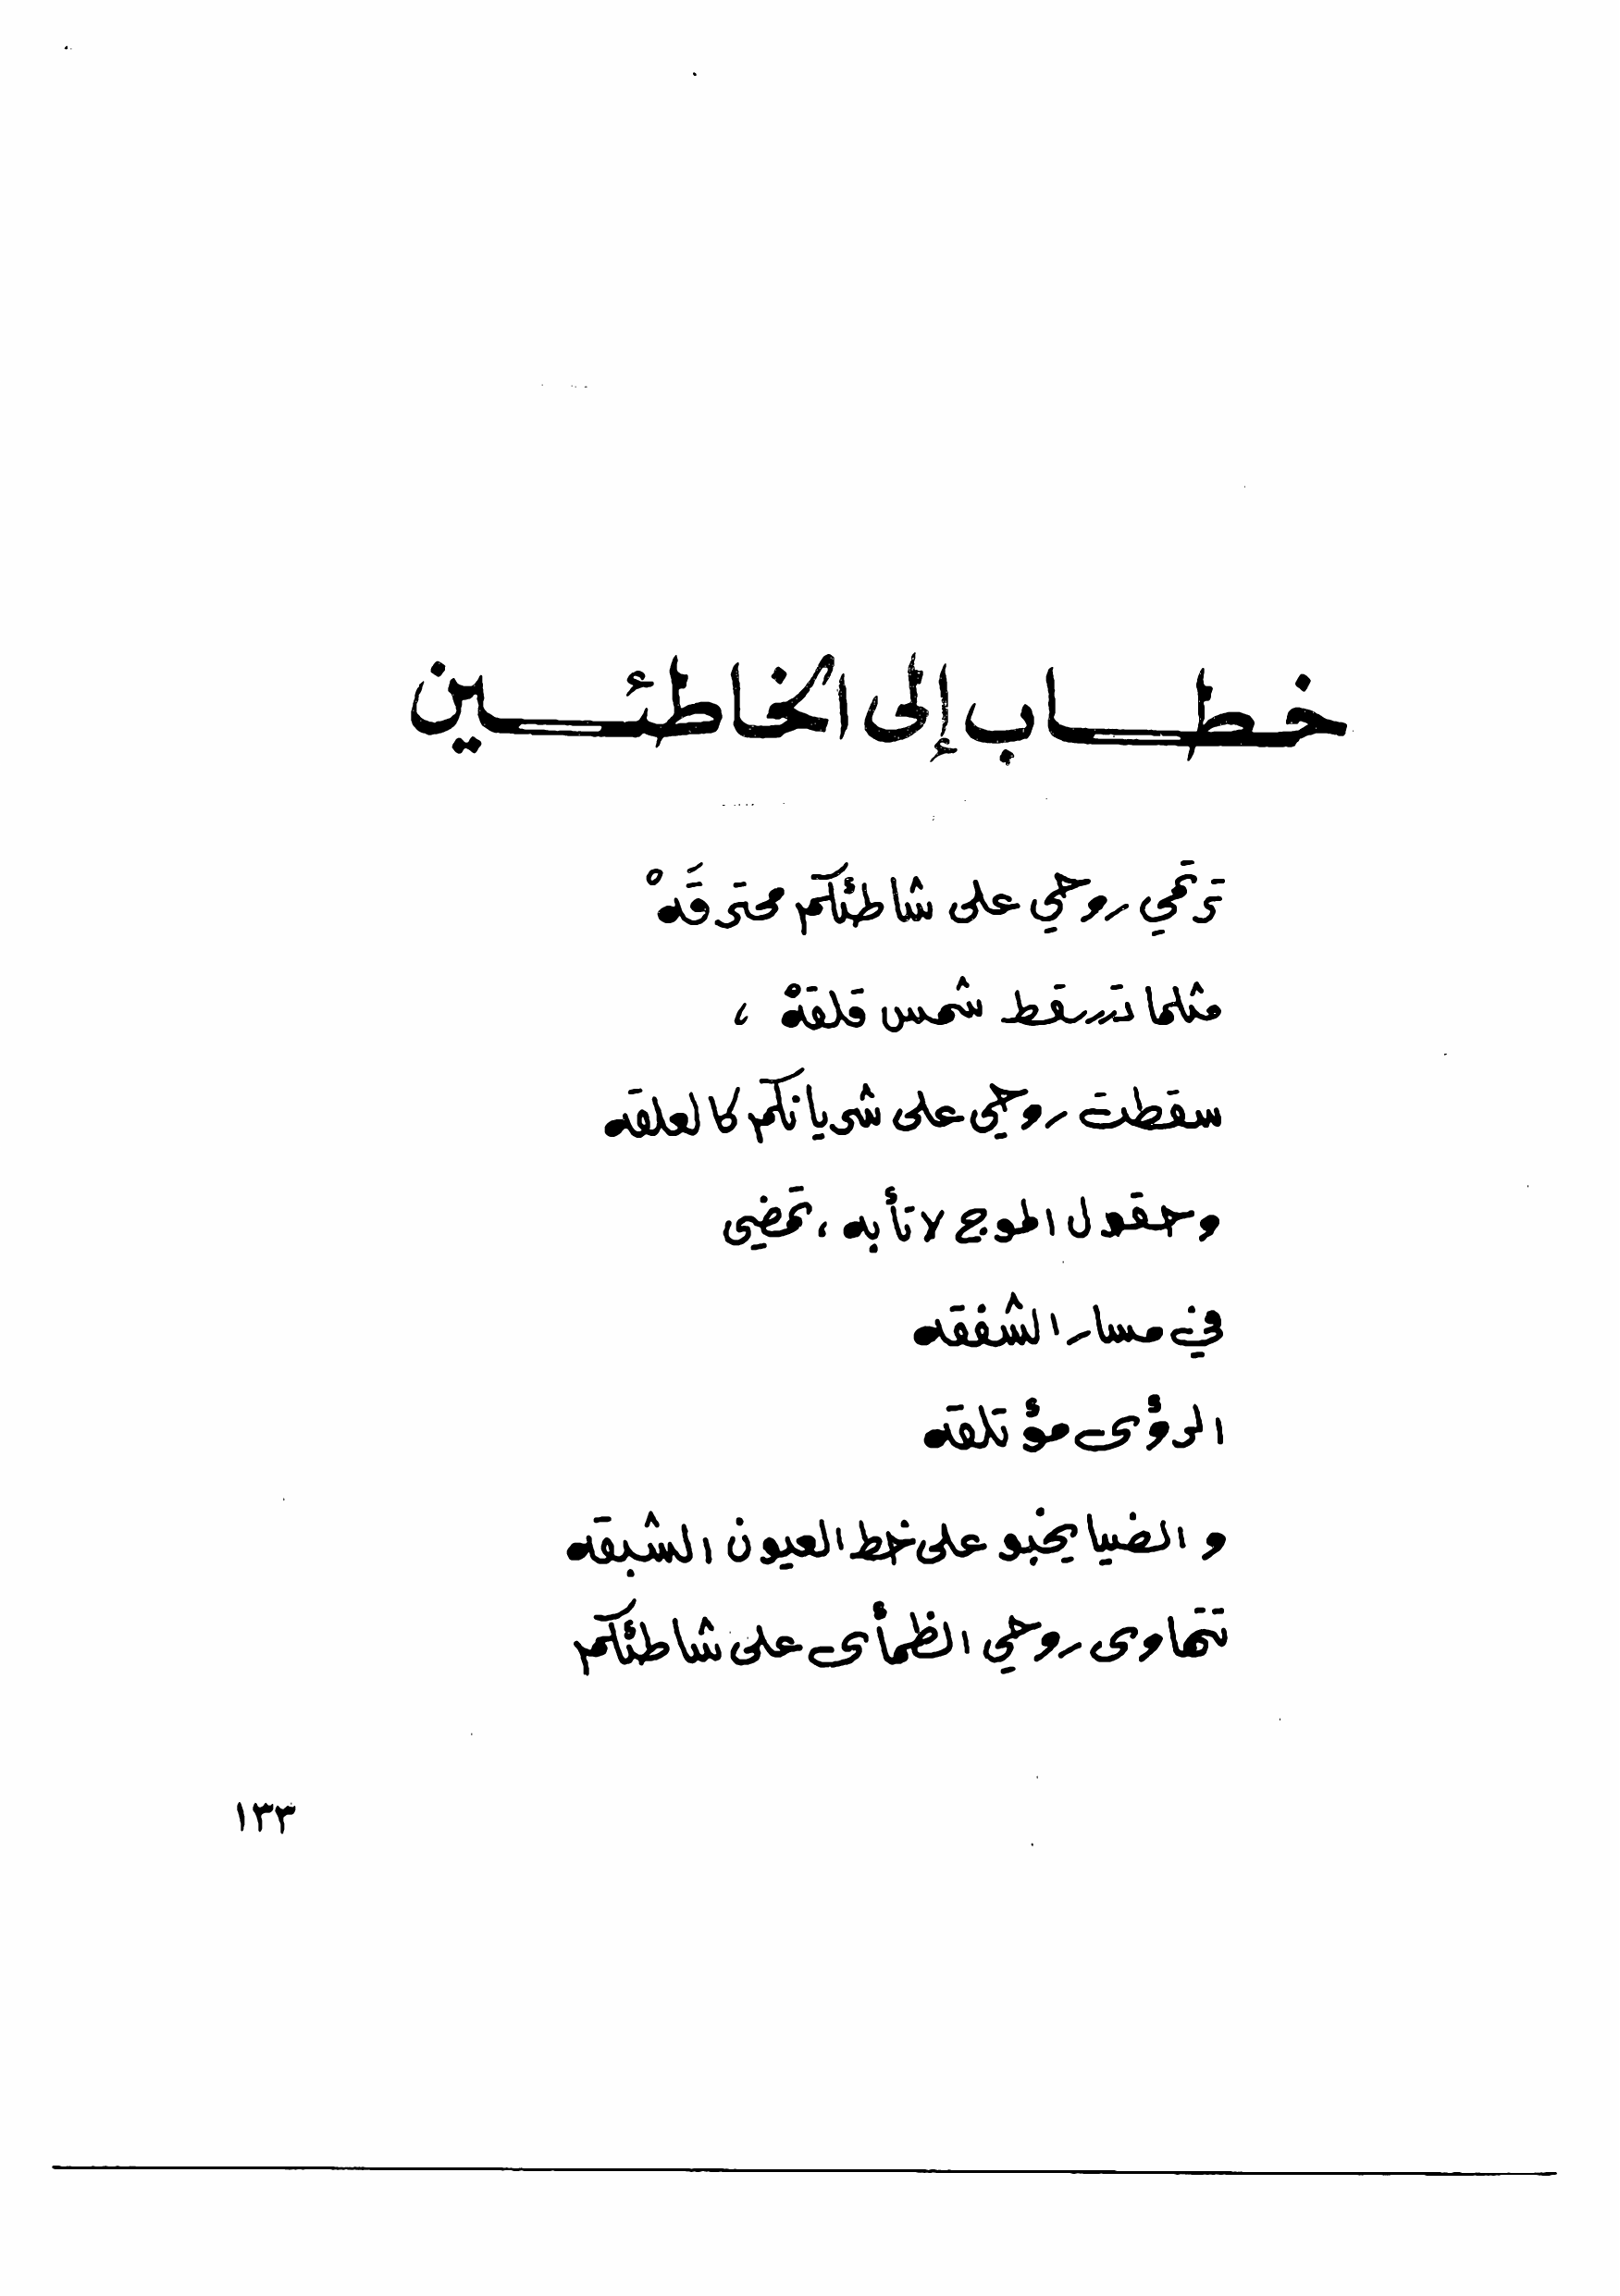 خطاب إلى الخاطئين
ترتمي روحي على شاطئكم محترقَهْ
مثلما تسقط شمس قلقهْ ،
سقطت روحي على شريانكم كالعلقه
وحقول الموج لا تأبه ، تمضي
في مسار الشفقه
الرؤى مؤتلقه
والضيا يخبو على خط العيون الشبقه
تتهاوى روحي الظمأى على شاطئكم
١٣٣